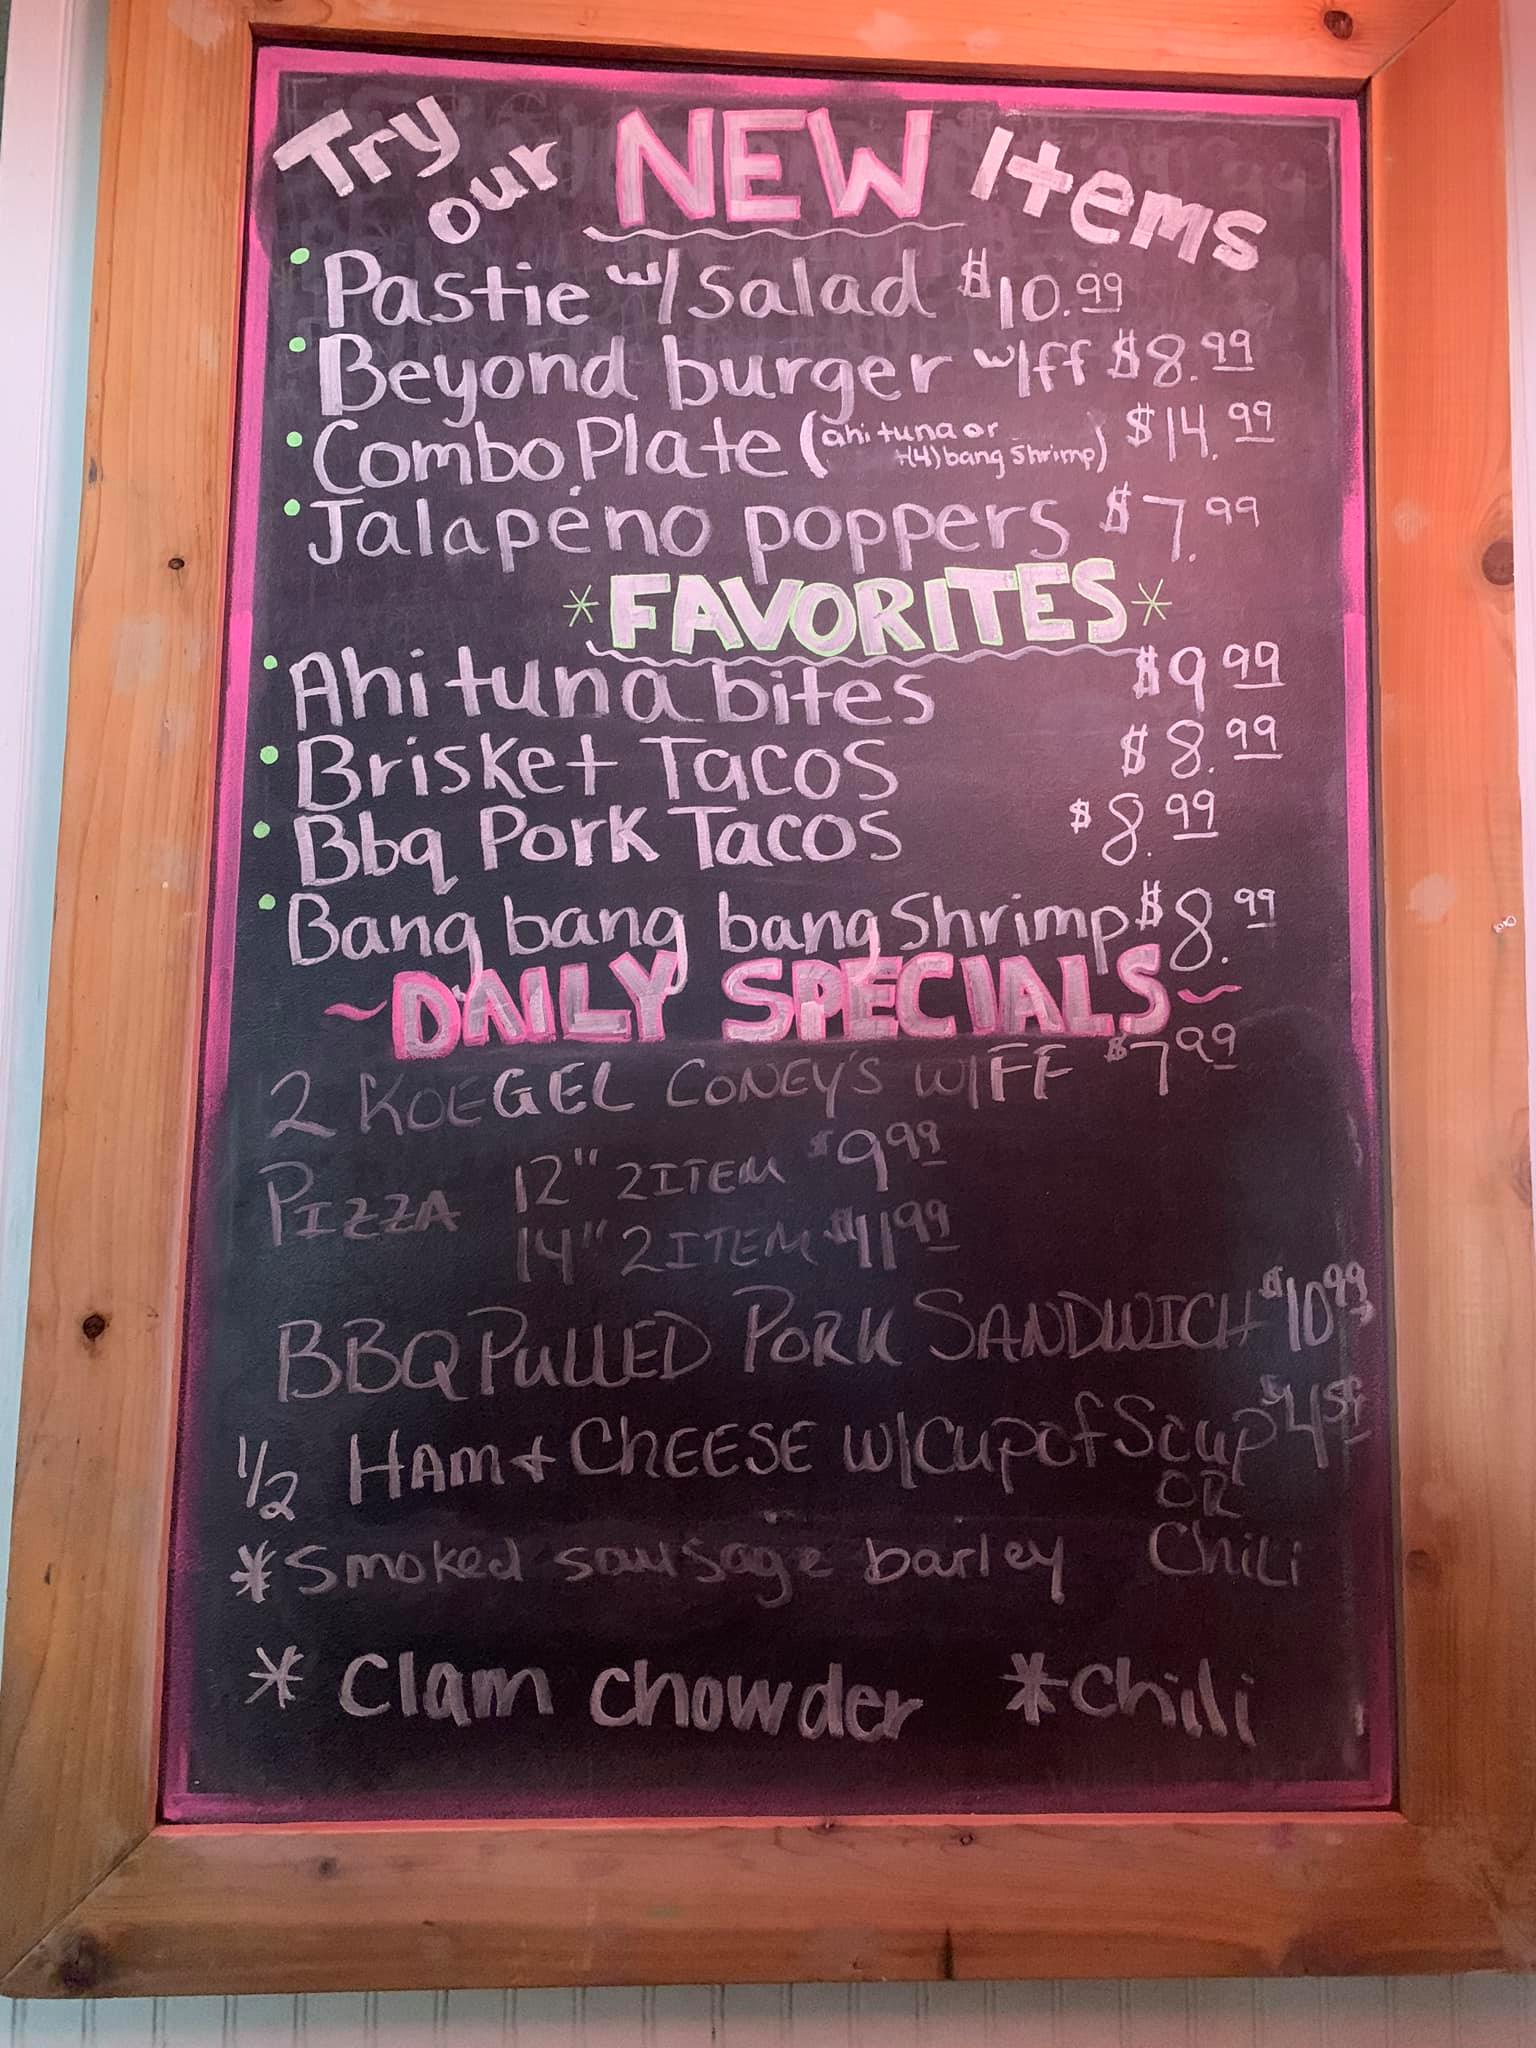 Try our NEW Items
• Pastie w/ Salad $10.99
• Beyond burger w/ff $8.99
• Combo Plate (ahi tuna or +(4) bang Shrimp) $14.99
• Jalapéno poppers $7.99
*FAVORITES*
• Ahi tuna bites $9 99
• Brisket Tacos $8.99
• Bbq Pork Tacos $8.99
• Bang bang bang Shrimp $8.99
~DAILY SPECIALS~
2 KOEGEL CONEY'S W/FF $7 99
PIZZA 12" 2 ITEM $9 99
14" 2 ITEM $11 99
BBQ PULLED PORK SANDWICH $10 99
1/2 HAM + CHEESE W/Cup of Soup
OR
*Smoked sausage barley Chili
* Clam chowder *Chili